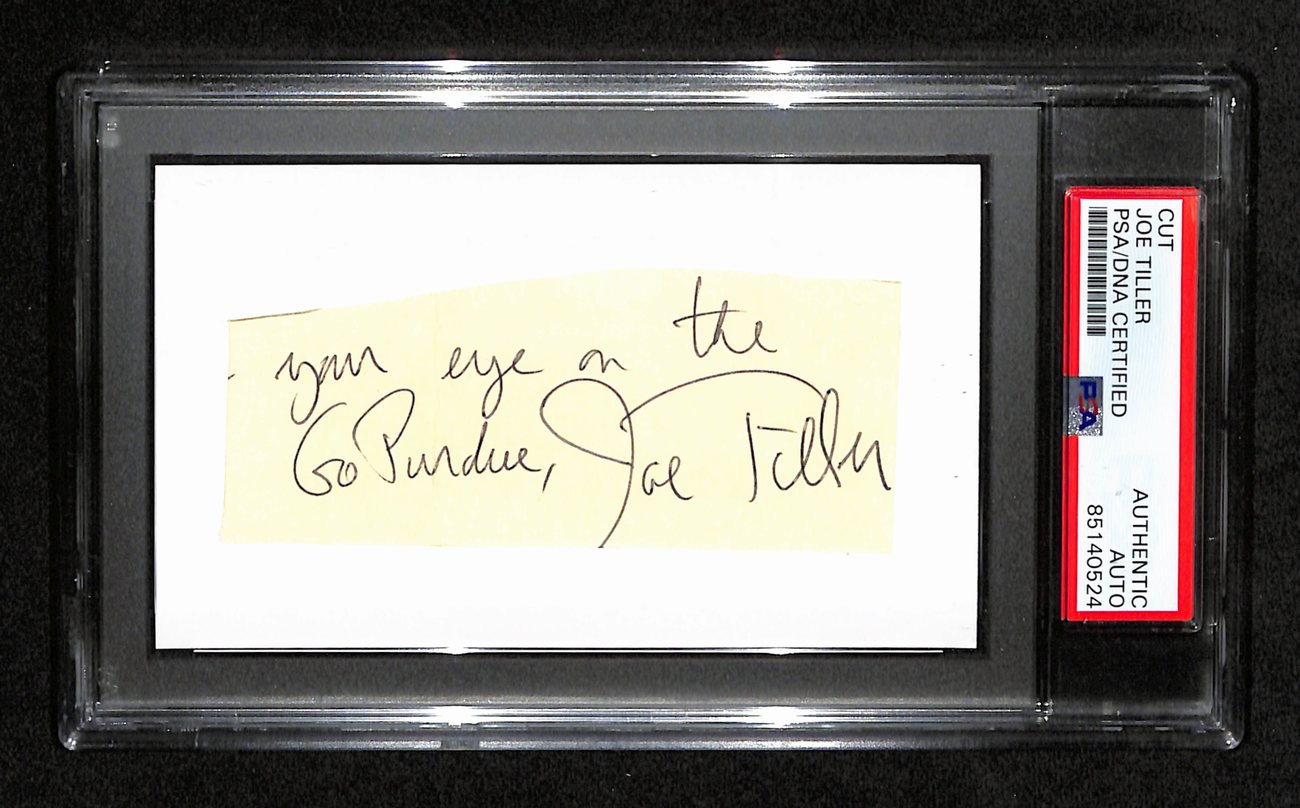 your eye on the
Go Purdue, Joe Tiller
CUT
JOE TILLER
PSA/DNA CERTIFIED
PSA
AUTHENTIC
AUTO
85140524